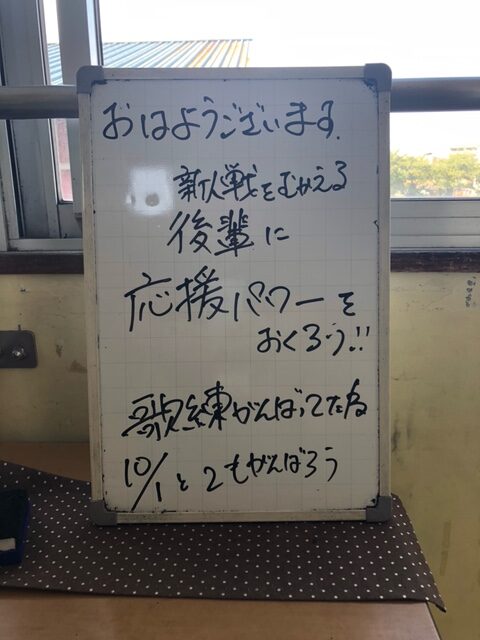 おはようございます.
新人戦をむかえる
後輩に
応援パワーを
おくろう!!
歌練がんばってたね
10/1と2もがんばろう